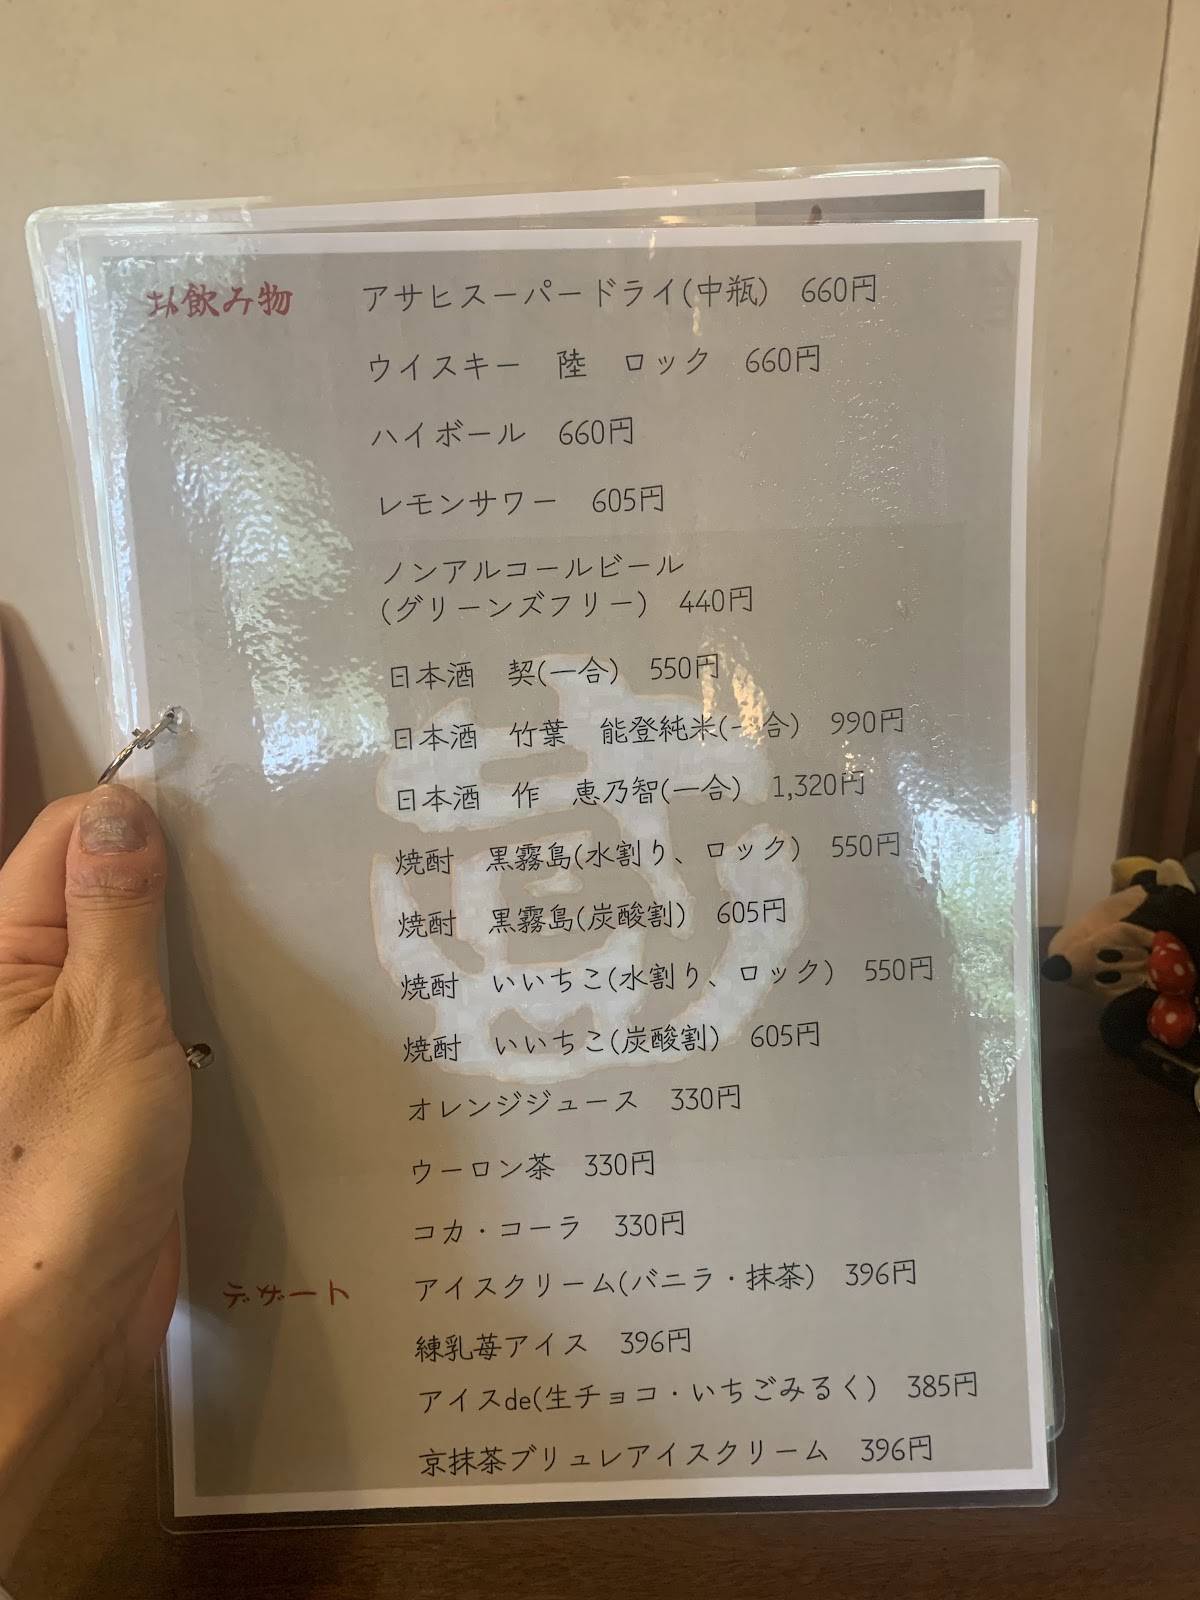 お飲み物
アサヒスーパードライ(中瓶) 660円
ウイスキー 陸 ロック 660円
ハイボール 660円
レモンサワー 605円
ノンアルコールビール
(グリーンズフリー) 440円
日本酒 契(一合) 550円
日本酒 竹葉 能登純米(一合) 990円
日本酒 作 恵乃智(一合) 1,320円
焼酎 黒霧島(水割り、ロック) 550円
焼酎 黒霧島(炭酸割) 605円
焼酎 いいちこ(水割り、ロック) 550円
焼酎 いいちこ(炭酸割) 605円
オレンジジュース 330円
ウーロン茶 330円
コカ・コーラ 330円
デザート
アイスクリーム(バニラ・抹茶) 396円
練乳苺アイス 396円
アイスde(生チョコ・いちごみるく) 385円
京抹茶ブリュレアイスクリーム 396円